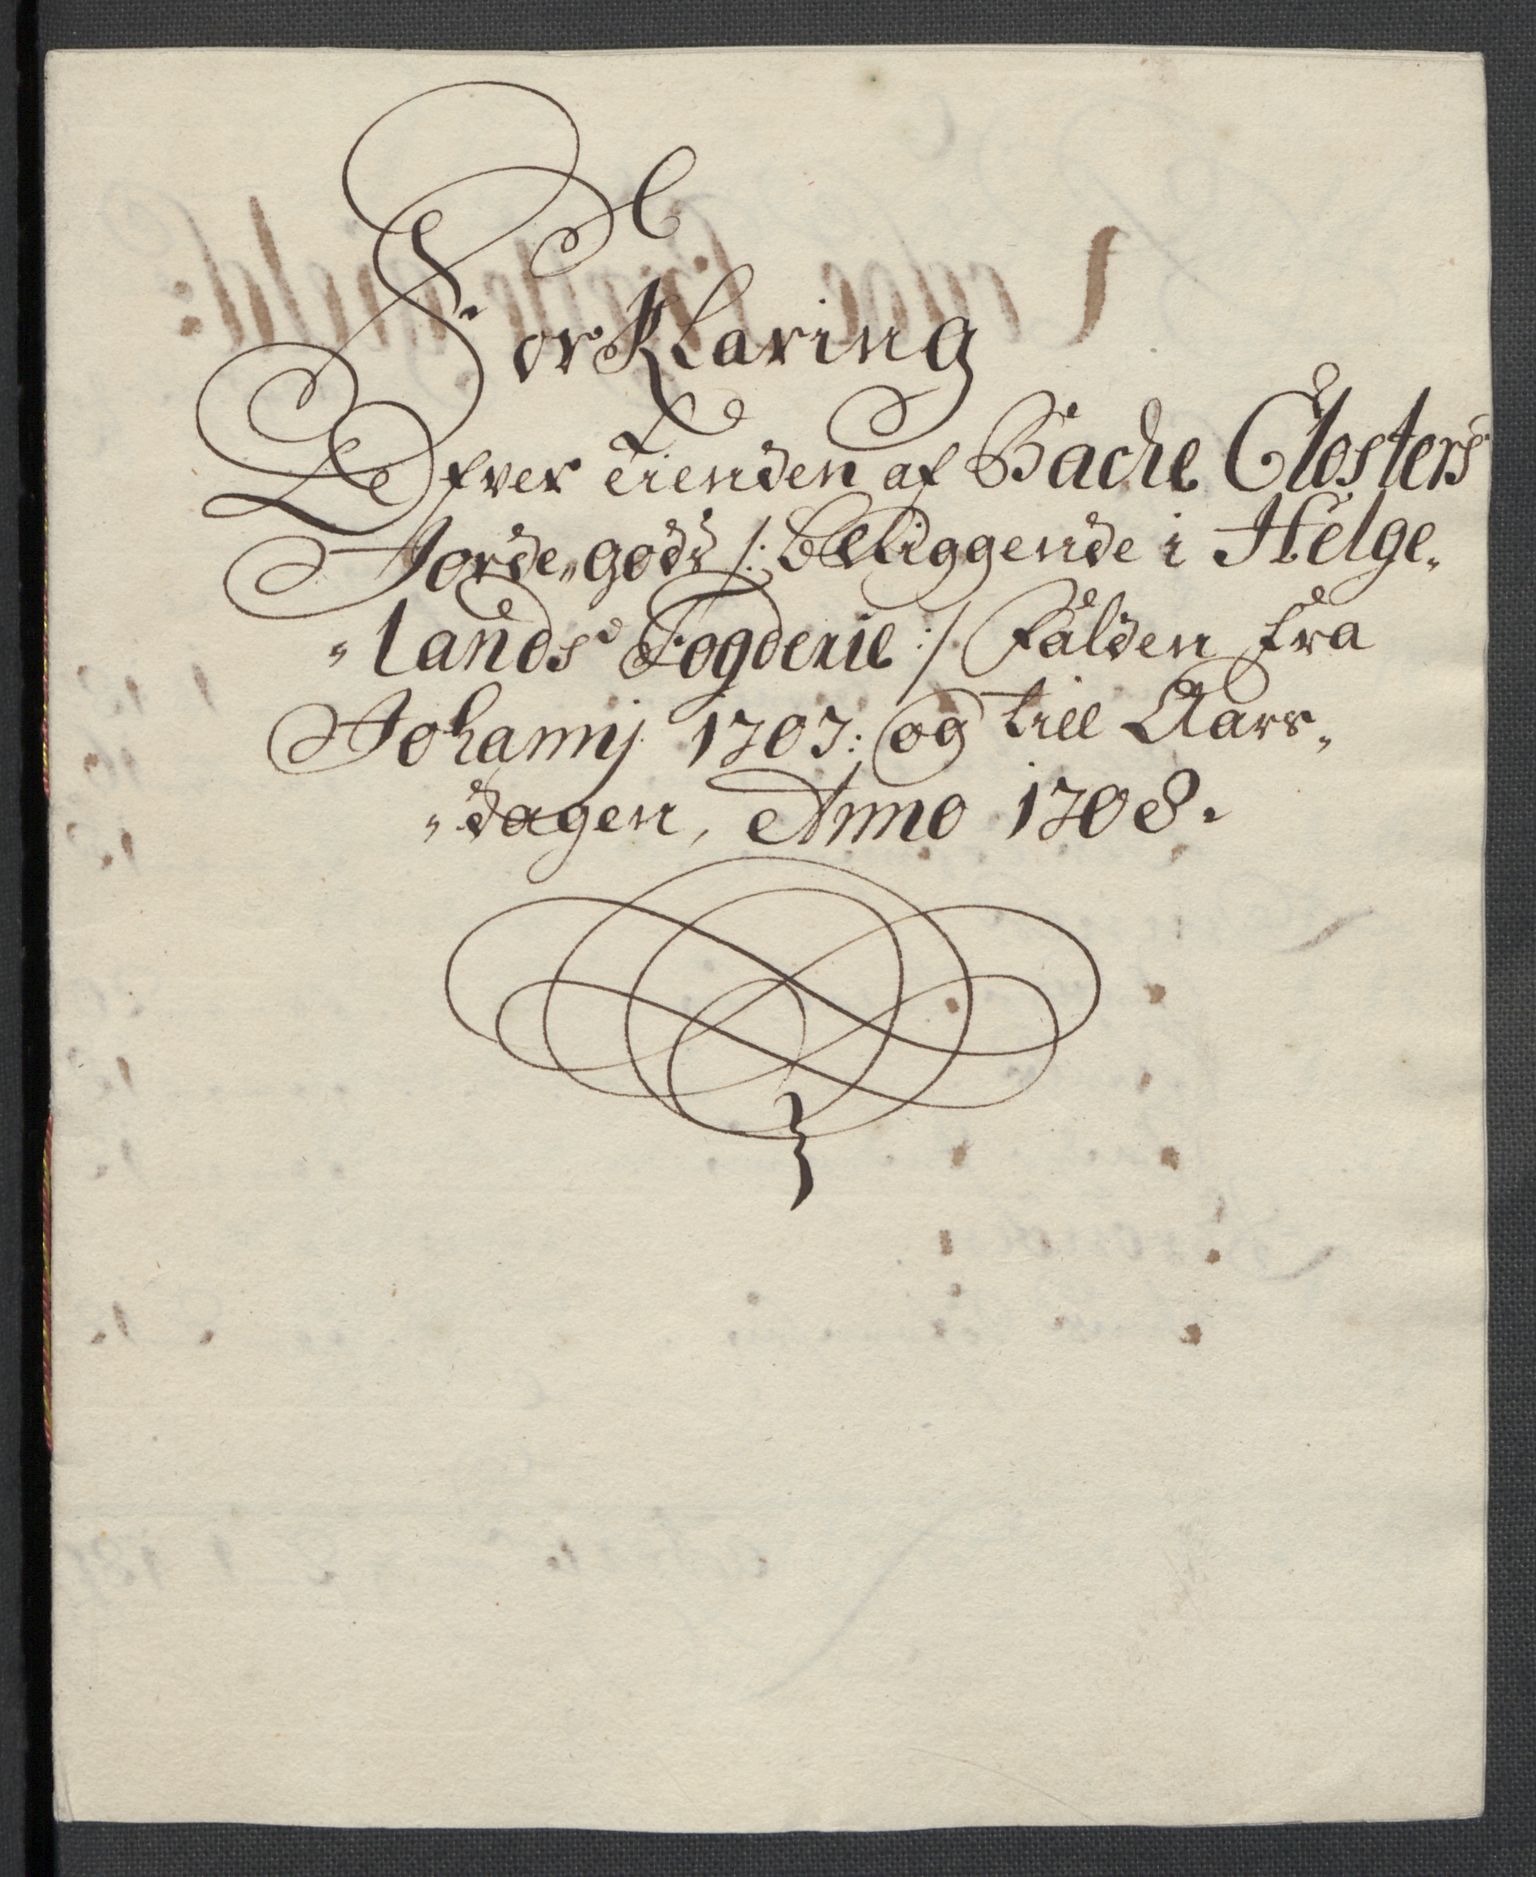 Forklaring
Ofver Tienden af Bache Closters
Jorde„gods /: Beliggende i Helge„
„lands Fogderie :/ Falden fra
Johannj 1707: og till Aars„
„dagen, Anno 1708.